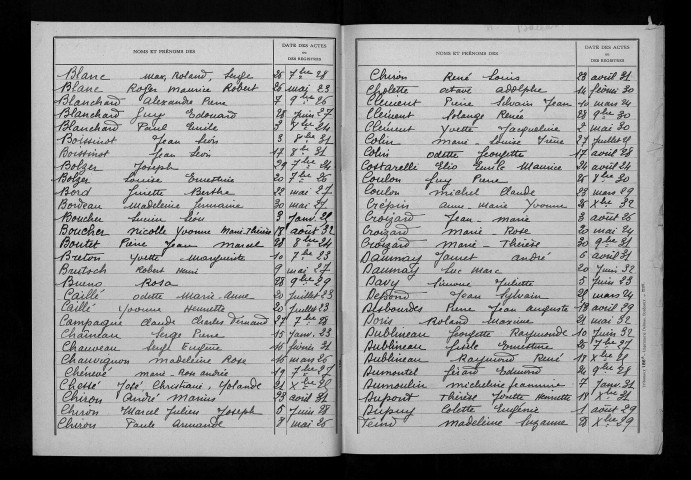 NOMS ET PRÉNOMS DES
DATE DES ACTES
OU
DES REGISTRES
Blanc Max, Roland, Serge 26 7bre 28
Blanc Roger Maurice Robert 26 mai 23
Blanchard Alexandre Pierre 7 9bre 26
Blanchard Guy Edouard 28 juin 27
Blanchard Paul Emile 3 7bre 24
Boissinot Jean Léon 3 8bre 31
Boissinot Jean Léon 17 8bre 31
Bolzer Joseph 29 7bre 24
Bolzer Louise Ernestine 20 7bre 26
Bord Ginette Berthe 22 mai 27
Bordeau Madeleine Germaine 30 mai 31
Boucher Lucien Léon 3 janv. 29
Boucher Nicolle Yvonne Marie-Thérèse 18 août 32
Boutet Pierre Jean Marcel 28 8bre 24
Breton Yvette Marguerite 10 7bre 23
Robert Henri 9 mai 27
Bueno Rosa 28 9bre 29
Caillé Odette Marie-Anne 20 juillet 23
Caillé Yvonne Henriette 20 juillet 23
Campagne Claude Charles Fernand 27 7bre 28
Chaineau Serge Pierre 15 janv. 23
Chauveau Serge Eugène 16 février 31
Chauvignon Madeleine Rose 16 mars 26
Chénevé Marie-Rose Andrée 19 7bre 27
Chessé José, Christiane, Yolande 21 Xbre 28
Chiron André Marius 23 avril 31
Chiron Marcel Julien Joseph 5 juin 28
Chiron Paule Armande 8 mai 26
NOMS ET PRÉNOMS DES
DATE DES ACTES
OU
DES REGISTRES
Chiron René Louis 23 avril 31
Cholette Octave Adolphe 14 février 30
Clément Pierre Sylvain Jean 10 mars 24
Clément Solange Renée 28 9bre 30
Clément Yvette Jacqueline 2 mai 30
Colin Marie Louise 27 juillet
Colin Odette Georgette 17 avril 28
Costarelli Elio Emile Maurice 24 avril 24
Coulon Guy Pierre 26 8bre 30
Coulon Michel Claude 23 mars 29
Crépin Anne-Marie Yvonne 26 Xbre 32
Croizard Jean-Marie 3 août 26
Croizard Marie-Rose 20 mai 24
Croizard Marie-Thérèse 30 9bre 31
Daunay Janet André 6 avril 31
Daunay Luc Marc 20 juin 32
Davy Simone Juliette 5 juin 23
Jean Sylvain 21 mars 24
Desbourdes Pierre Jean Auguste 18 avril 29
Doris Roland Maxime 21 mai 32
Dublineau Georgette Raymonde 10 juin 32
Dublineau Gisèle Ernestine 25 7bre 27
Dublineau Raymond René 18 Xbre 28
Dumontel Gérard Edmond 24 9bre 28
Dumoulin Micheline Jeannine 7 janv. 31
Dupont Thérèse Yvette Henriette 18 Xbre 31
Dupuy Colette Eugénie 1 août 29
Madeleine Suzanne 28 Xbre 29